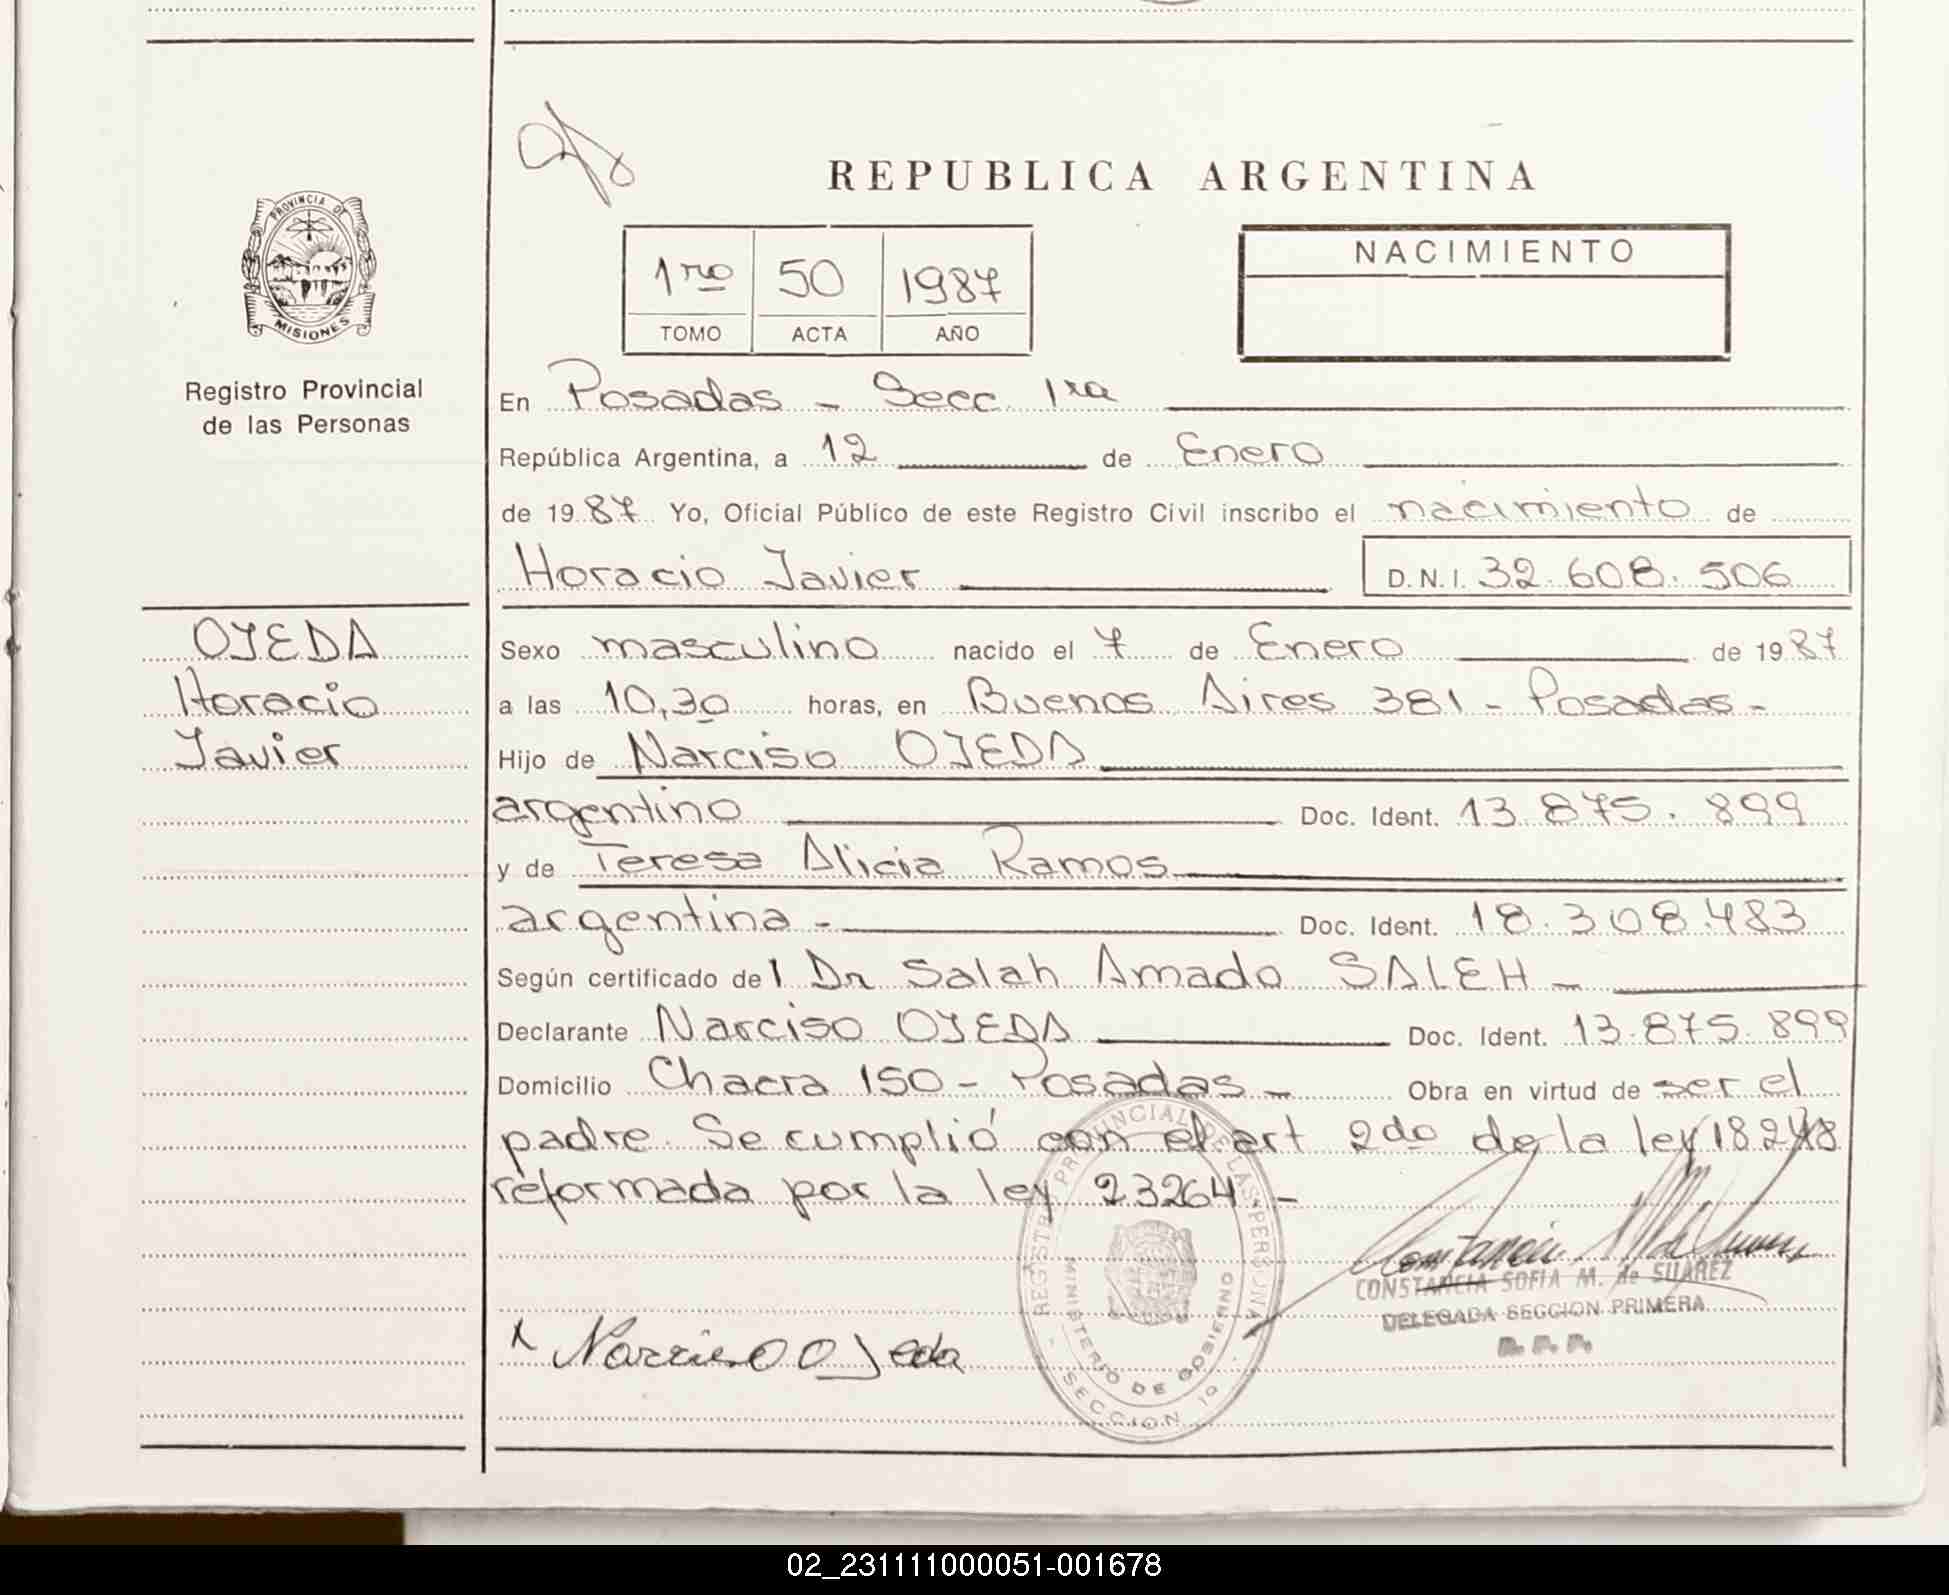 REPUBLICA ARGENTINA
PROVINCIA DE
MISIONES
Registro Provincial
de las Personas
1ro 50 1987
TOMO ACTA AÑO
NACIMIENTO
En Posadas - Secc. 1ra
República Argentina, a 12 de Enero
de 1987 Yo, Oficial Público de este Registro Civil inscribo el nacimiento de
Horacio Javier D.N.I. 32.608.506
OJEDA
Horacio
Javier
Sexo masculino nacido el 7 de Enero de 1987
a las 10,30 horas, en Buenos Aires 381 - Posadas -
Hijo de Narciso OJEDA
argentino Doc. Ident. 13.875.899
y de Teresa Alicia Ramos
argentina - Doc. Ident. 18.308.483
Según certificado del Dr Salah Amado SALEH -
Declarante Narciso OJEDA Doc. Ident. 13.875.899
Domicilio Chacra 150 - Posadas - Obra en virtud de ser el
padre. Se cumplió con el art 2do de la ley 18.248
reformada por la ley 23264 -
REGISTRO PROVINCIAL DE LAS PERSONAS
MINISTERIO DE GOBIERNO
- SECCION 1a -
CONSTANCIA SOFIA M. de SUAREZ
DELEGADA SECCION PRIMERA
R. P. P.
Narciso Ojeda
02_231111000051-001678